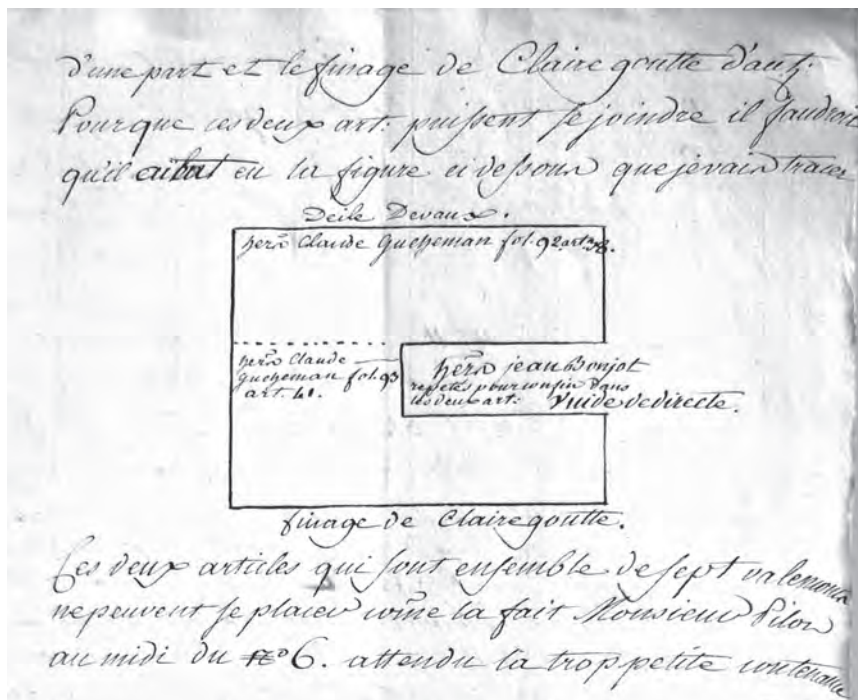 d'une part et le finage de Claire goutte d'aut:
Pourque ces deux art: puissent se joindre il faudroit
qu'il eu la figure ci dessous que je vais tracer
Deile Devaux.
hers Claude Gucheman fol. 92 art. 38.
hers Claude
Gucheman fol. 93
art. 41.
hers jean Bonjot
repetés pour confin dans
les deux art: Vuide de directe.
finage de Claire goutte.
Ces deux articles qui sont ensemble de sept
ne peuvent se placer come la fait Monsieur Pilon
au midi du no 6. attendu la trop petite contenance